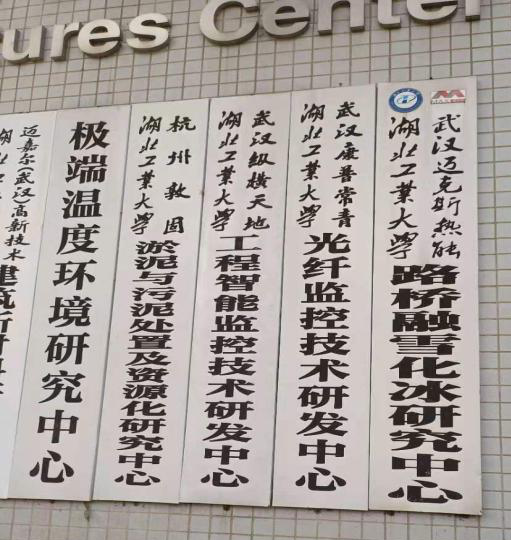 ures Center
迈嘉尔(武汉)高新技术
湖北工
建筑新材料
极端温度环境研究中心
湖北工业大学
杭州敦固
淤泥与污泥处置及资源化研究中心
湖北工业大学
武汉纵横天地
工程智能监控技术研发中心
湖北工业大学
武汉康普常青
光纤监控技术研发中心
湖北工业大学
武汉迈克斯热能
路桥融雪化冰研究中心